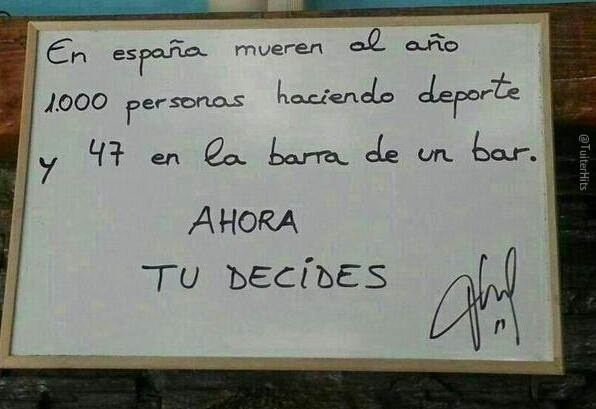 En españa mueren al año
1.000 personas haciendo deporte
y 47 en la barra de un bar.
AHORA
TU DECIDES
@TuiterHits